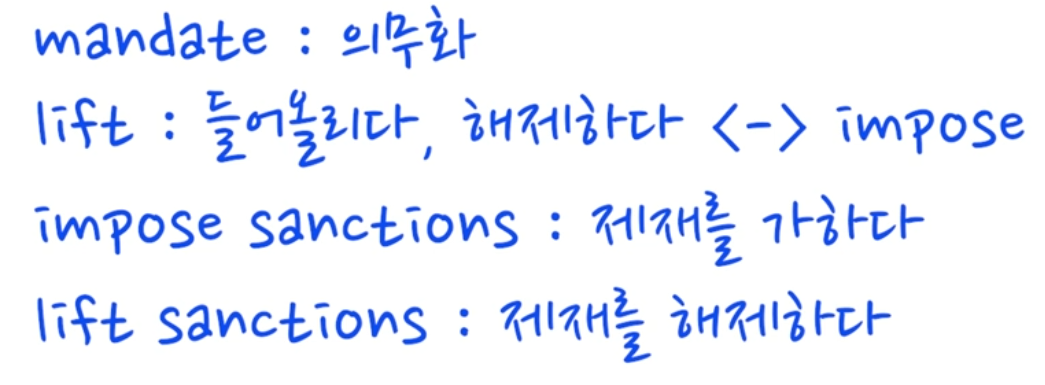 mandate : 의무화
lift : 들어올리다, 해제하다 <-> impose
impose sanctions : 제재를 가하다
lift sanctions : 제재를 해제하다